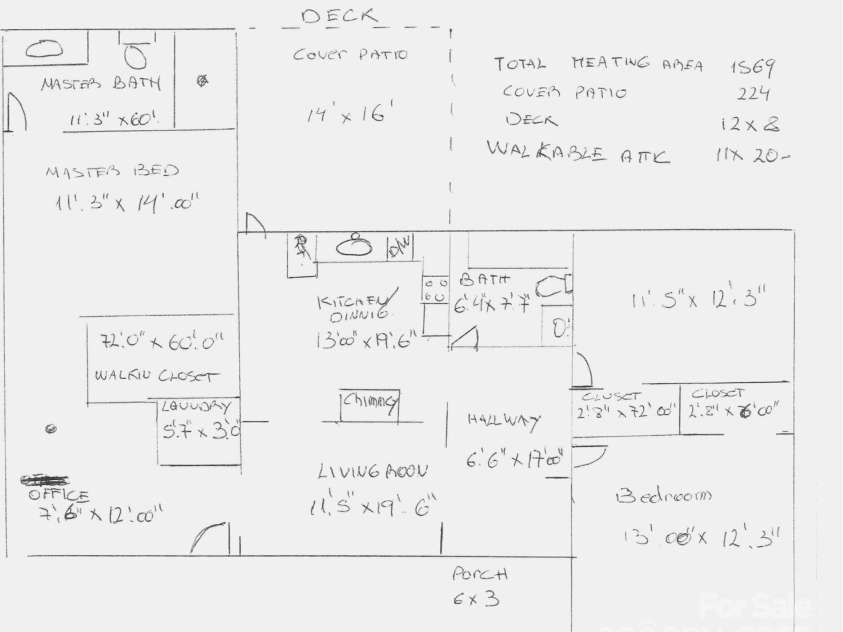 DECK
COVER PATIO
14' x 16'
TOTAL HEATING AREA 1569
COVER PATIO 224
DECK 12 x 8
WALKABLE ATTK 11 x 20-
MASTER BATH
11'.3" x 60'.
MASTER BED
11'.3" x 14'.00"
KITCHEN/
DINNIG
13'00" x 19'.6"
D/W
BATH
6'.4 x 7'.7"
11'.5" x 12'.3"
72'.0" x 60'.0"
WALKIN CLOSET
LAUNDRY
5'.7" x 3'.0
CHIMNEY
HALLWAY
6'.6" x 17'00"
CLOSET
2'.8" x 72'00"
CLOSET
LIVING ROON
11'.5" x 19'.6"
OFFICE
7'.6" x 12'.00"
Bedroom
13'.00" x 12'.3"
PORCH
6 x 3
For Sale